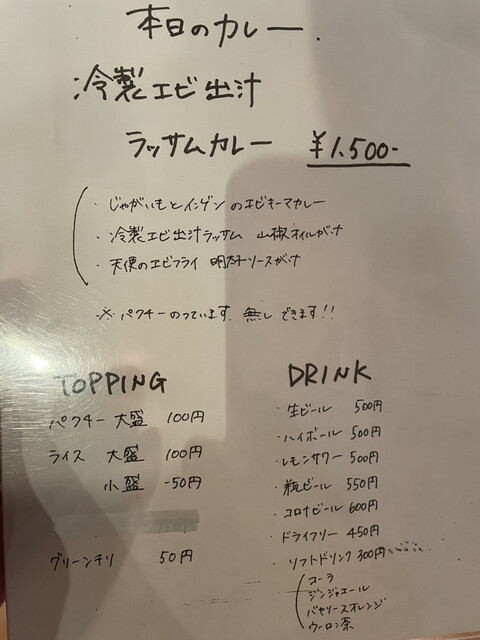 本日のカレー.
冷製エビ出汁
ラッサムカレー ¥1.500-
・じゃがいもとインゲンのエビキーマカレー
・冷製エビ出汁ラッサム 山椒オイルがけ
・天使のエビフライ 明太子ソースがけ
※パクチーのっています. 無しできます!!
TOPPING
パクチー 大盛 100円
ライス 大盛 100円
小盛 -50円
グリーンチリ 50円
DRINK
・生ビール 500円
・ハイボール 500円
・レモンサワー 500円
・瓶ビール 550円
・コロナビール 600円
・ドライフリー 450円
・ソフトドリンク 300円
コーラ
ジンジャエール
バヤリースオレンジ
ウーロン茶